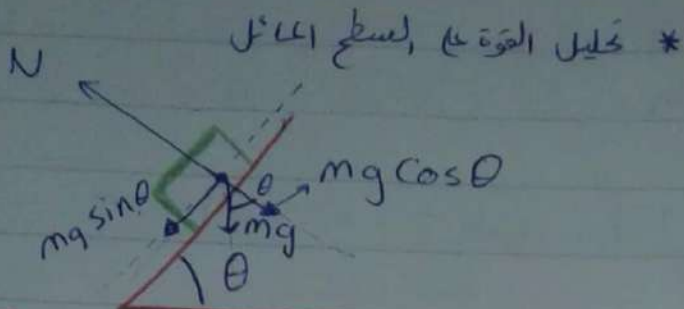 * تحليل القوة على السطح المائل
N
θ
mg cosθ
mg sinθ
mg
θ